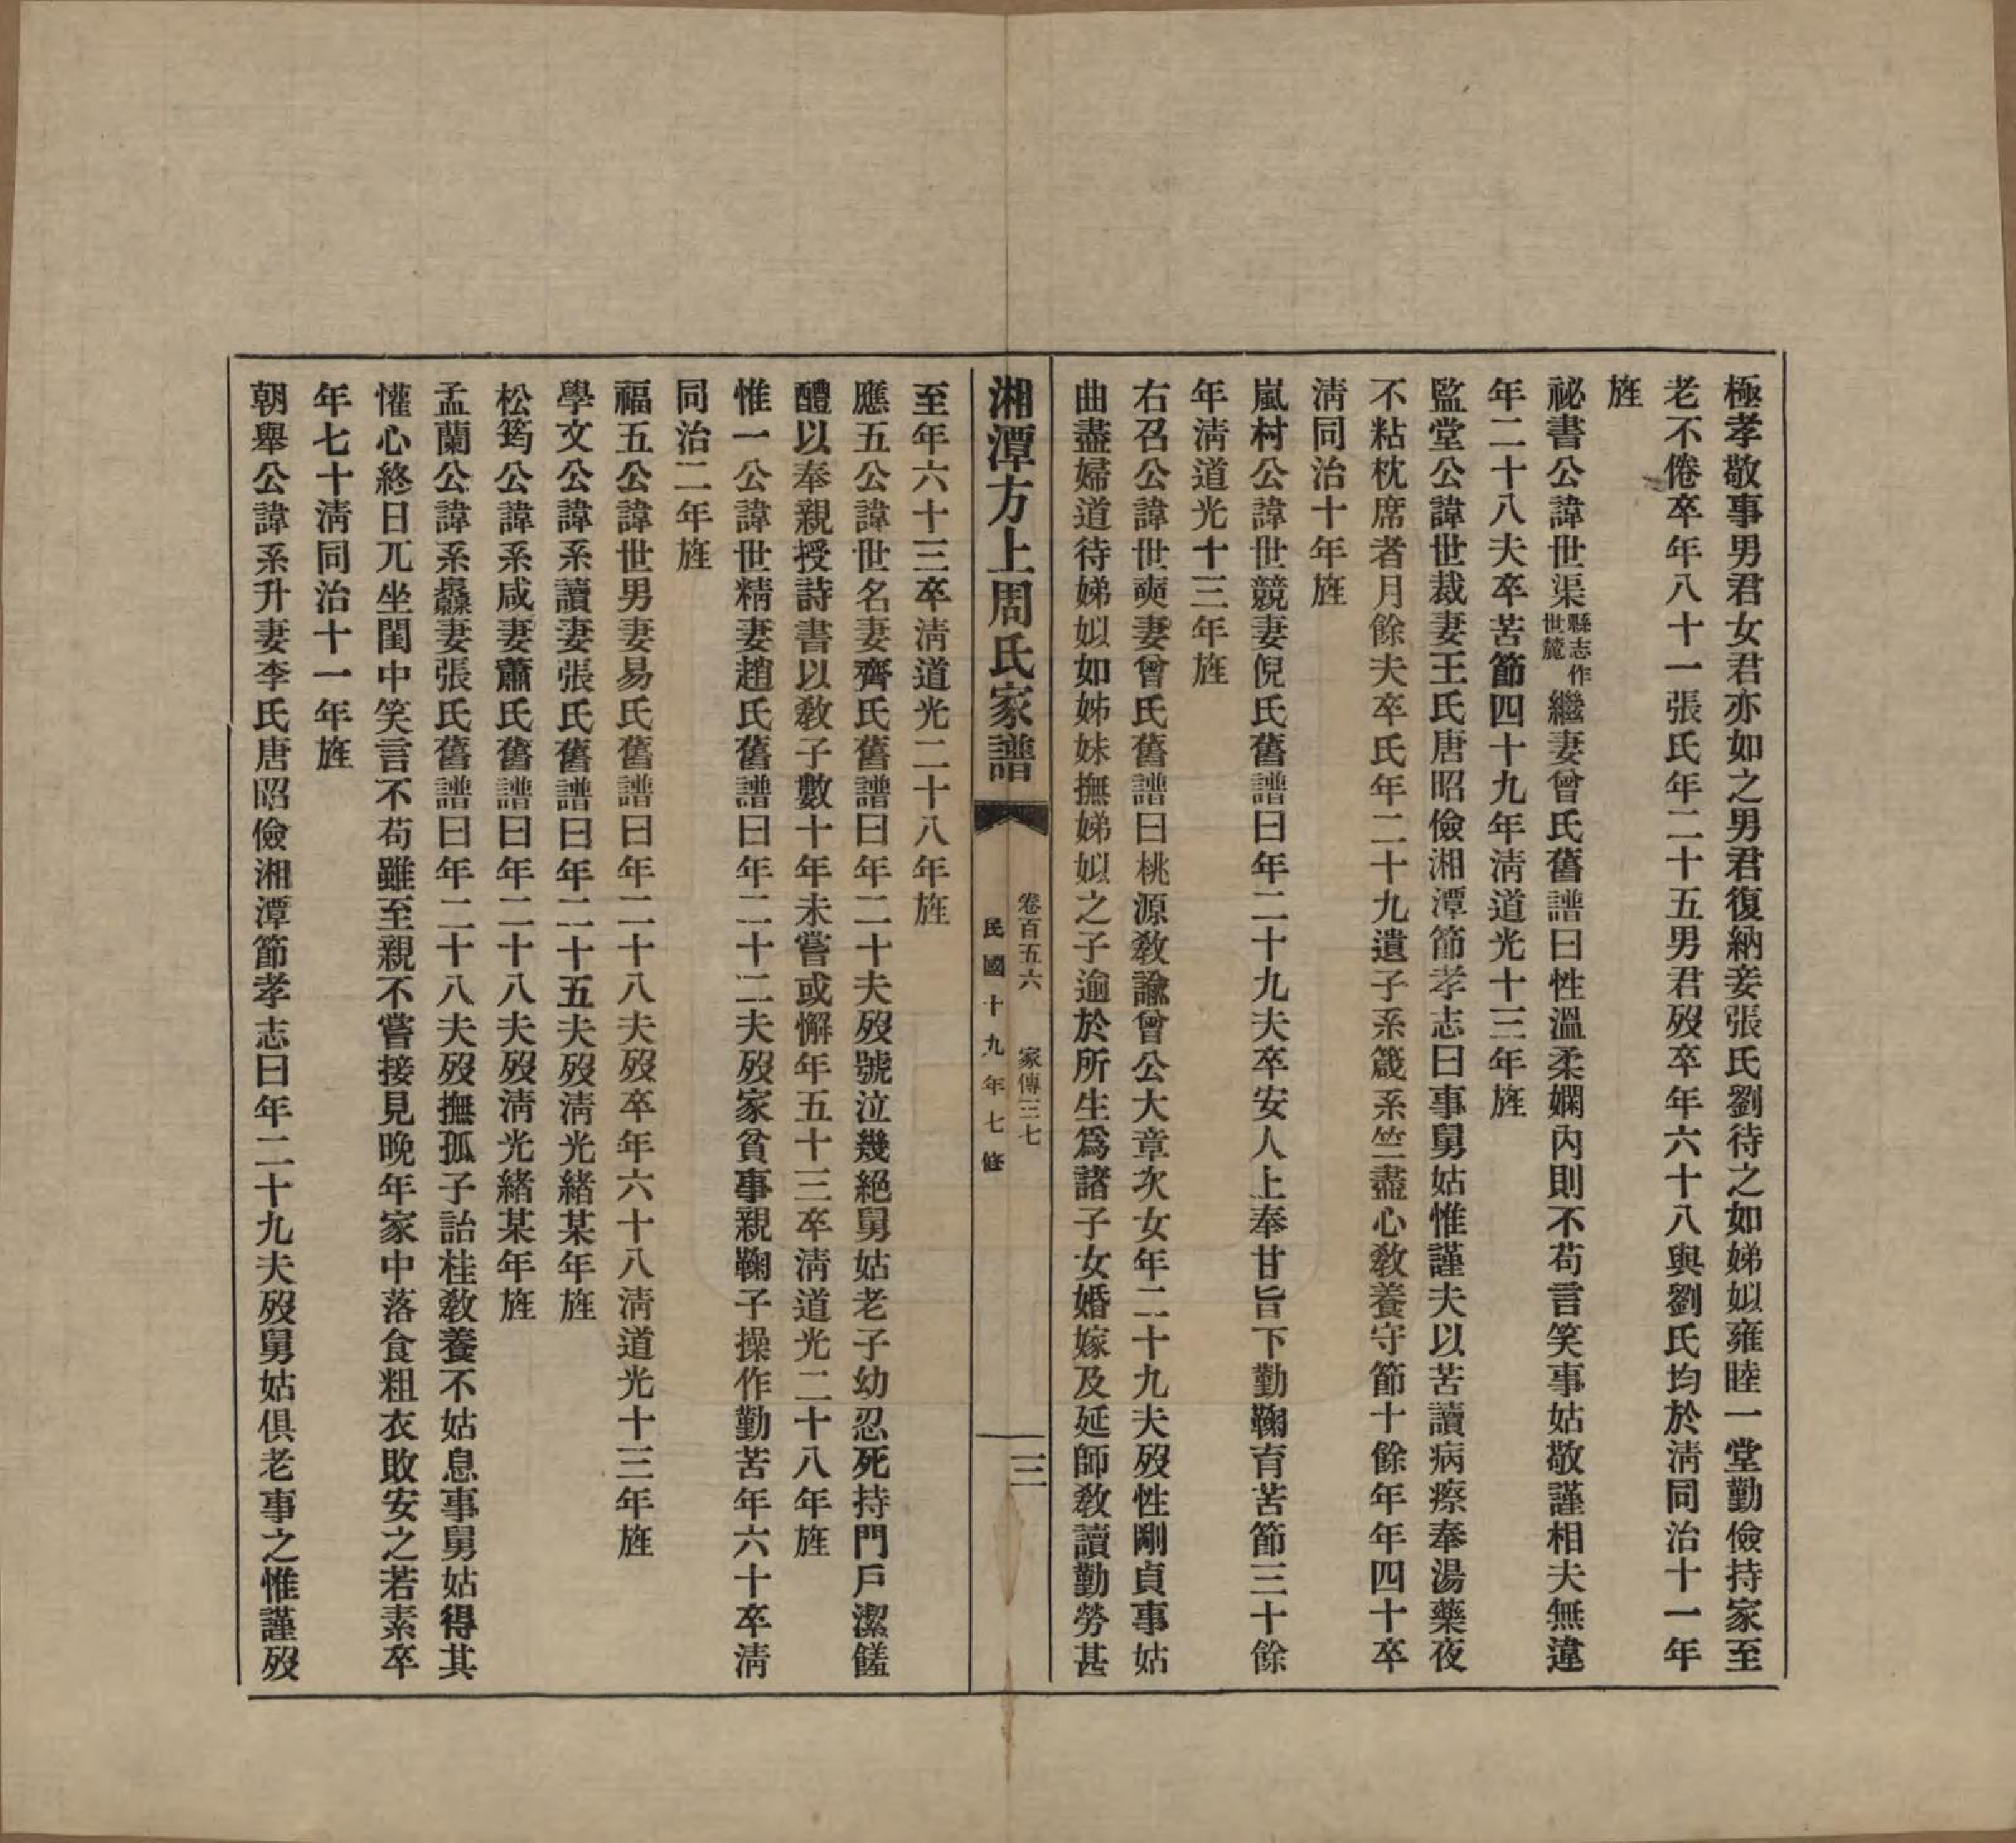 極孝敬事男君女君亦如之男君復納妾張氏劉待之如娣姒雍睦一堂勤儉持家至
老不倦卒年八十一張氏年二十五男君歿卒年六十八與劉氏均於淸同治十一年
旌
祕書公諱世渠縣志作世簏繼妻曾氏舊譜曰性溫柔嫻內則不苟言笑事姑敬謹相夫無違
年二十八夫卒苦節四十九年淸道光十三年旌
監堂公諱世裁妻王氏唐昭儉湘潭節孝志曰事舅姑惟謹夫以苦讀病瘵奉湯藥夜
不粘枕席者月餘夫卒氏年二十九遺子系箴系竺盡心敎養守節十餘年年四十卒
淸同治十年旌
嵐村公諱世競妻倪氏舊譜曰年二十九夫卒安人上奉甘旨下勤鞠育苦節三十餘
年淸道光十三年旌
右召公諱世奭妻曾氏舊譜曰桃源敎諭曾公大章次女年二十九夫歿性剛貞事姑
曲盡婦道待娣姒如姊妹撫娣姒之子逾於所生爲諸子女婚嫁及延師敎讀勤勞甚
湘潭方上周氏家譜
卷百五六 家傳三七
民國十九年七修
三
至年六十三卒淸道光二十八年旌
應五公諱世名妻齊氏舊譜曰年二十夫歿號泣幾絕舅姑老子幼忍死持門戶潔饈
醴以奉親授詩書以敎子數十年未嘗或懈年五十三卒淸道光二十八年旌
惟一公諱世精妻趙氏舊譜曰年二十二夫歿家貧事親鞠子操作勤苦年六十卒淸
同治二年旌
福五公諱世男妻易氏舊譜曰年二十八夫歿卒年六十八淸道光十三年旌
學文公諱系讀妻張氏舊譜曰年二十五夫歿淸光緒某年旌
松筠公諱系咸妻蕭氏舊譜曰年二十八夫歿淸光緒某年旌
孟蘭公諱系妻張氏舊譜曰年二十八夫歿撫孤子詒桂敎養不姑息事舅姑得其
懽心終日兀坐閨中笑言不苟雖至親不嘗接見晚年家中落食粗衣敗安之若素卒
年七十淸同治十一年旌
朝舉公諱系升妻李氏唐昭儉湘潭節孝志曰年二十九夫歿舅姑俱老事之惟謹歿